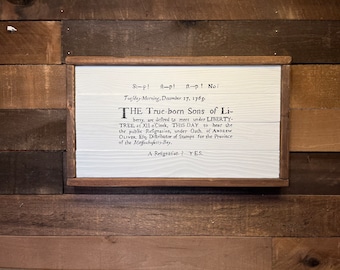 St--p! St--p! St--p! No:
Tuesday-Morning, December 17, 1765.
THE True-born Sons of Li-
berty, are desired to meet under LIBERTY-
TREE, at XII o'Clock, THIS DAY, to hear the
the public Resignation, under Oath, of ANDREW
OLIVER, Esq; Distributor of Stamps for the Province
of the Massachusetts-Bay.
A Resignation? YES.